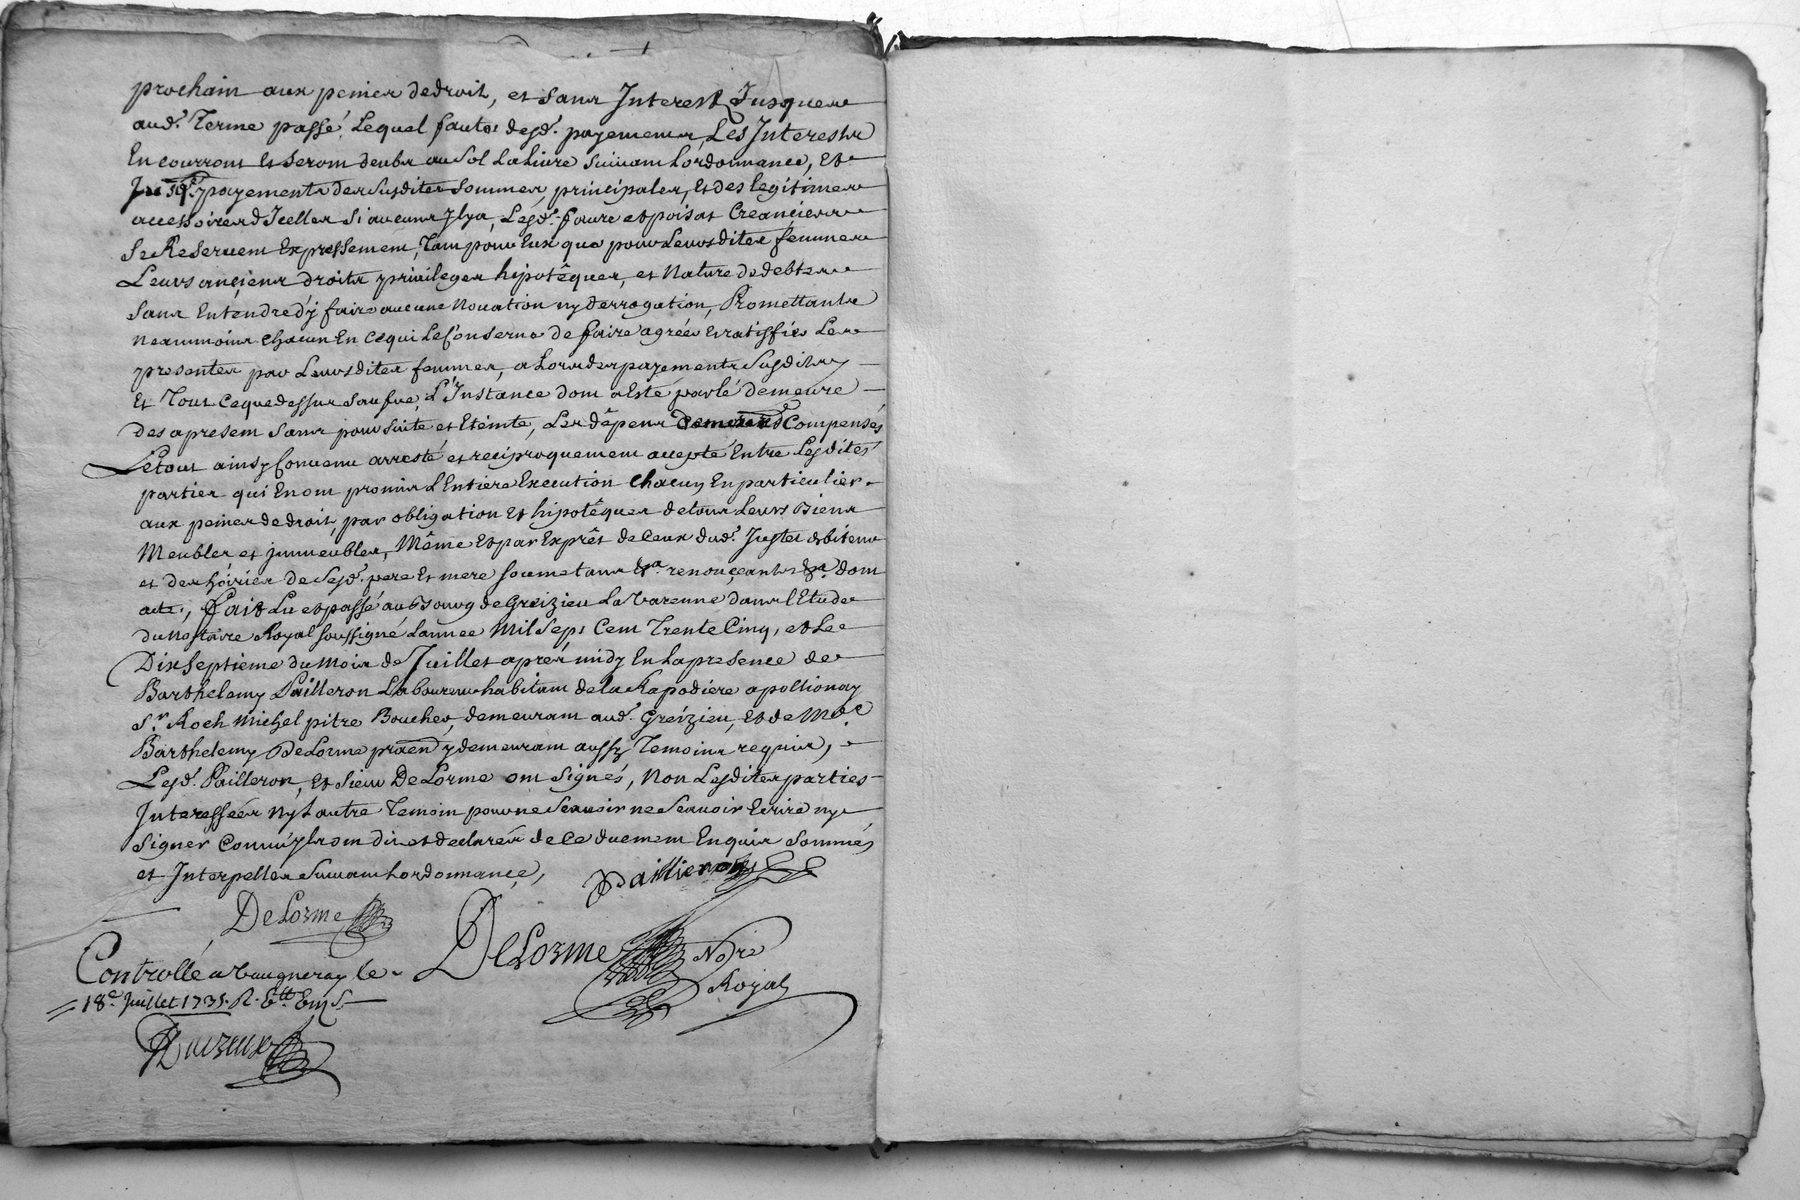 prochain aux peines de droit, et sans Interest Jusques
aud.t Terme passé, Lequel faute desd.t payements, Les Interests
En courront et seront deubs au sol La livre suivant Lordonnance, Et
Jusq. payements des susdites sommes principales, Et des legitimes
accessoires d'Icelles si aucuns Jl y a, Lesd.t faure et poisat Creanciers
Se Reservent Expressement, Tant pour Eux que pour Leursdites femmes
Leurs anciens droits privileges hipotêques, et Nature de debtes
Sans Entendre d'y faire aucune Novation ny derrogation, Promettants
Neanmoins chacun En Ce qui Le Conserne de faire agréer Et ratiffier Les
presentes par Leursdites femmes, a Lors des payements Susdits,
Et Tout Ce que dessus, L'Instance dont a Esté parlé demeure
des apresent sans poursuite et Eteinte, Les dêpens Compensés
Letout ainsy Convenu arresté et reciproquement accepté Entre Lesdites
parties qui En ont promis L'Entiere Execution Chacun En particulier
aux peines de droit, par obligation Et hipotêques de tous Leurs Biens
Meubles et immeubles, Même Et par Exprêt de Ceux dud.t
et des hoiries de Sesd.t pere Et mere soumetants &a. renonçeants &a. dont
acte, Fait Lu et passé au Bourg de Greizieu La Varenne dans l'Etude
du Nottaire Royal soussigné Lannee Mil Sept Cent Trente Cinq, et Le
Dix Septieme du Mois de Juillet aprés midy En La presence de
Barthelemy Pailleron Laboureur habitant de la Rapodiere a pollionay
S.r Roch Michel pitre Boucher, demeurant aud.t Greizieu, Et de M.re
Barthelemy DeLorme praen y demeurant aussy Temoins requis,
Lesd.t Pailleron, Et Sieur DeLorme ont signés, Non Lesdites parties
Interessées Ny L'autre Temoin pour ne Scavoir ne Scavoir Ecrire ny
Signer Comm'jls ont dit et declarés de Ce duement Enquis Sommés
et Interpelles Suivant Lordonnance,
Paillieron
DeLorme
DeLorme Nore
Royal
Controllé a Vaugneray le
18.e Juillet 1735. R. Six S.